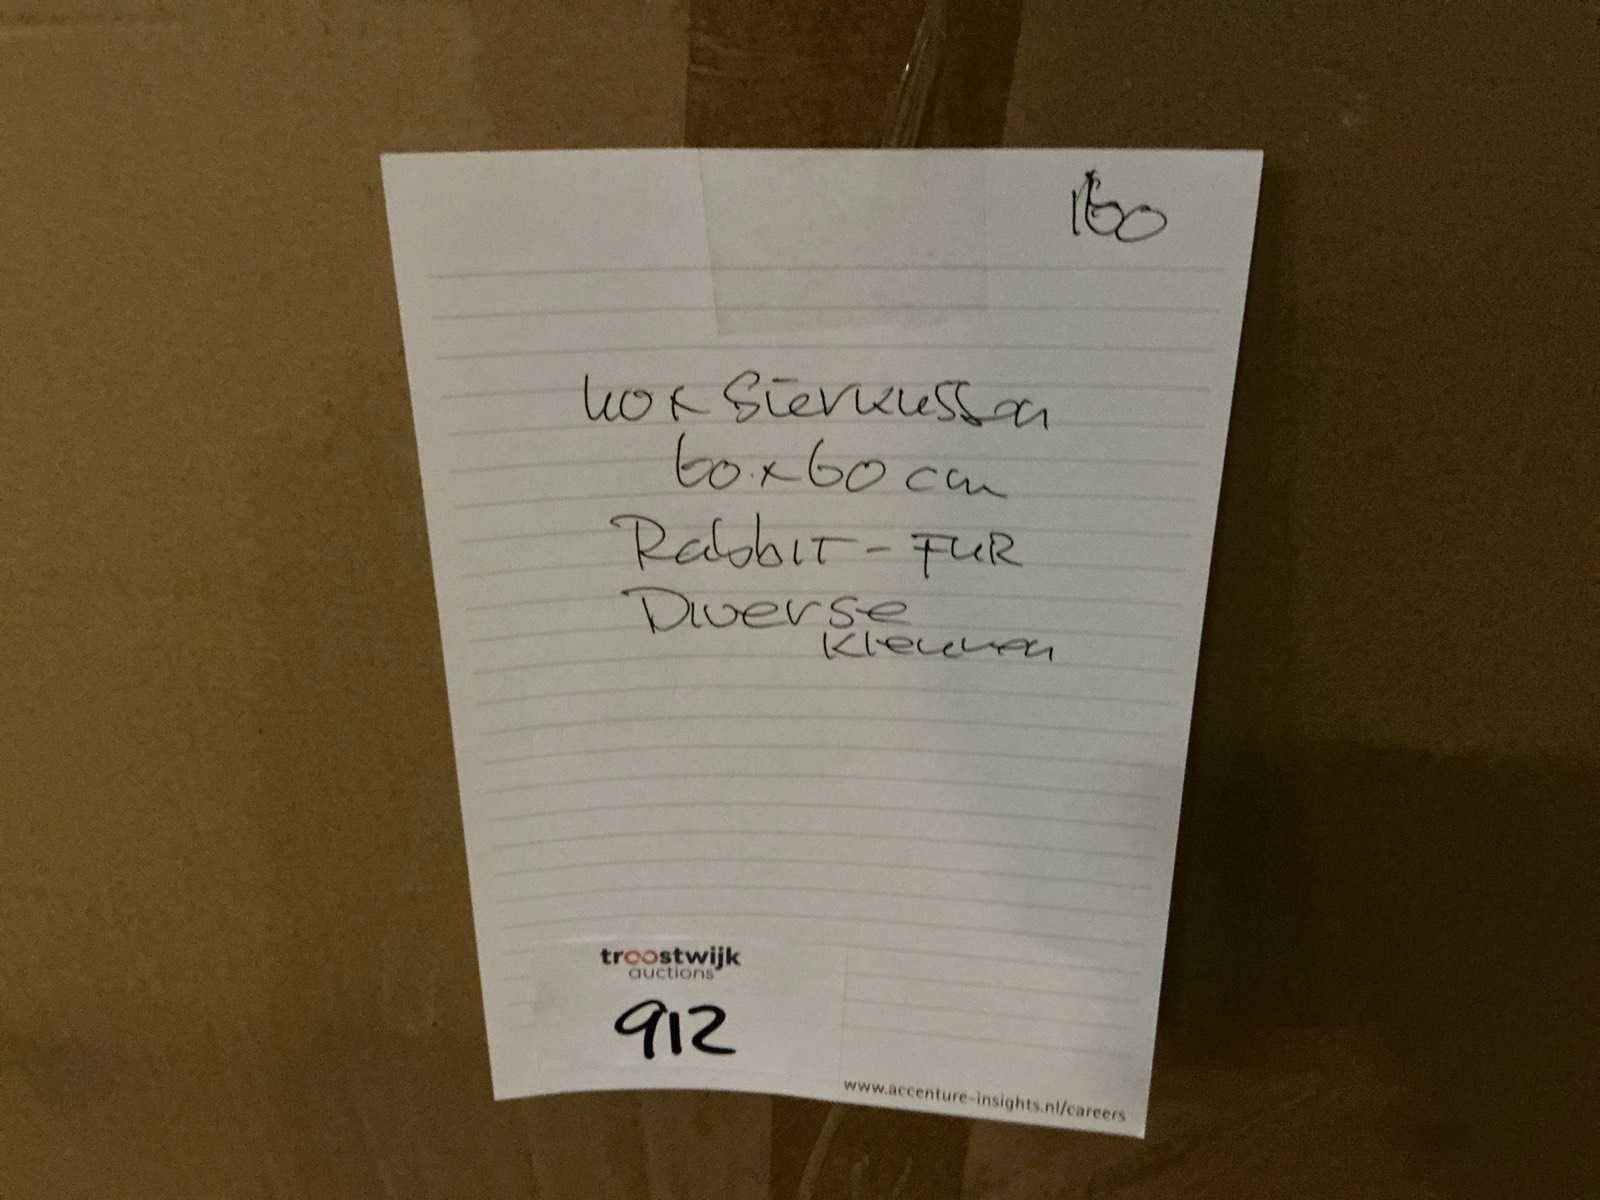 160
40x Sierkussen
60x60 cm
Rabbit - FUR
Diverse
Kleuren
troostwijk
auctions
912
www.accenture-insights.nl/careers